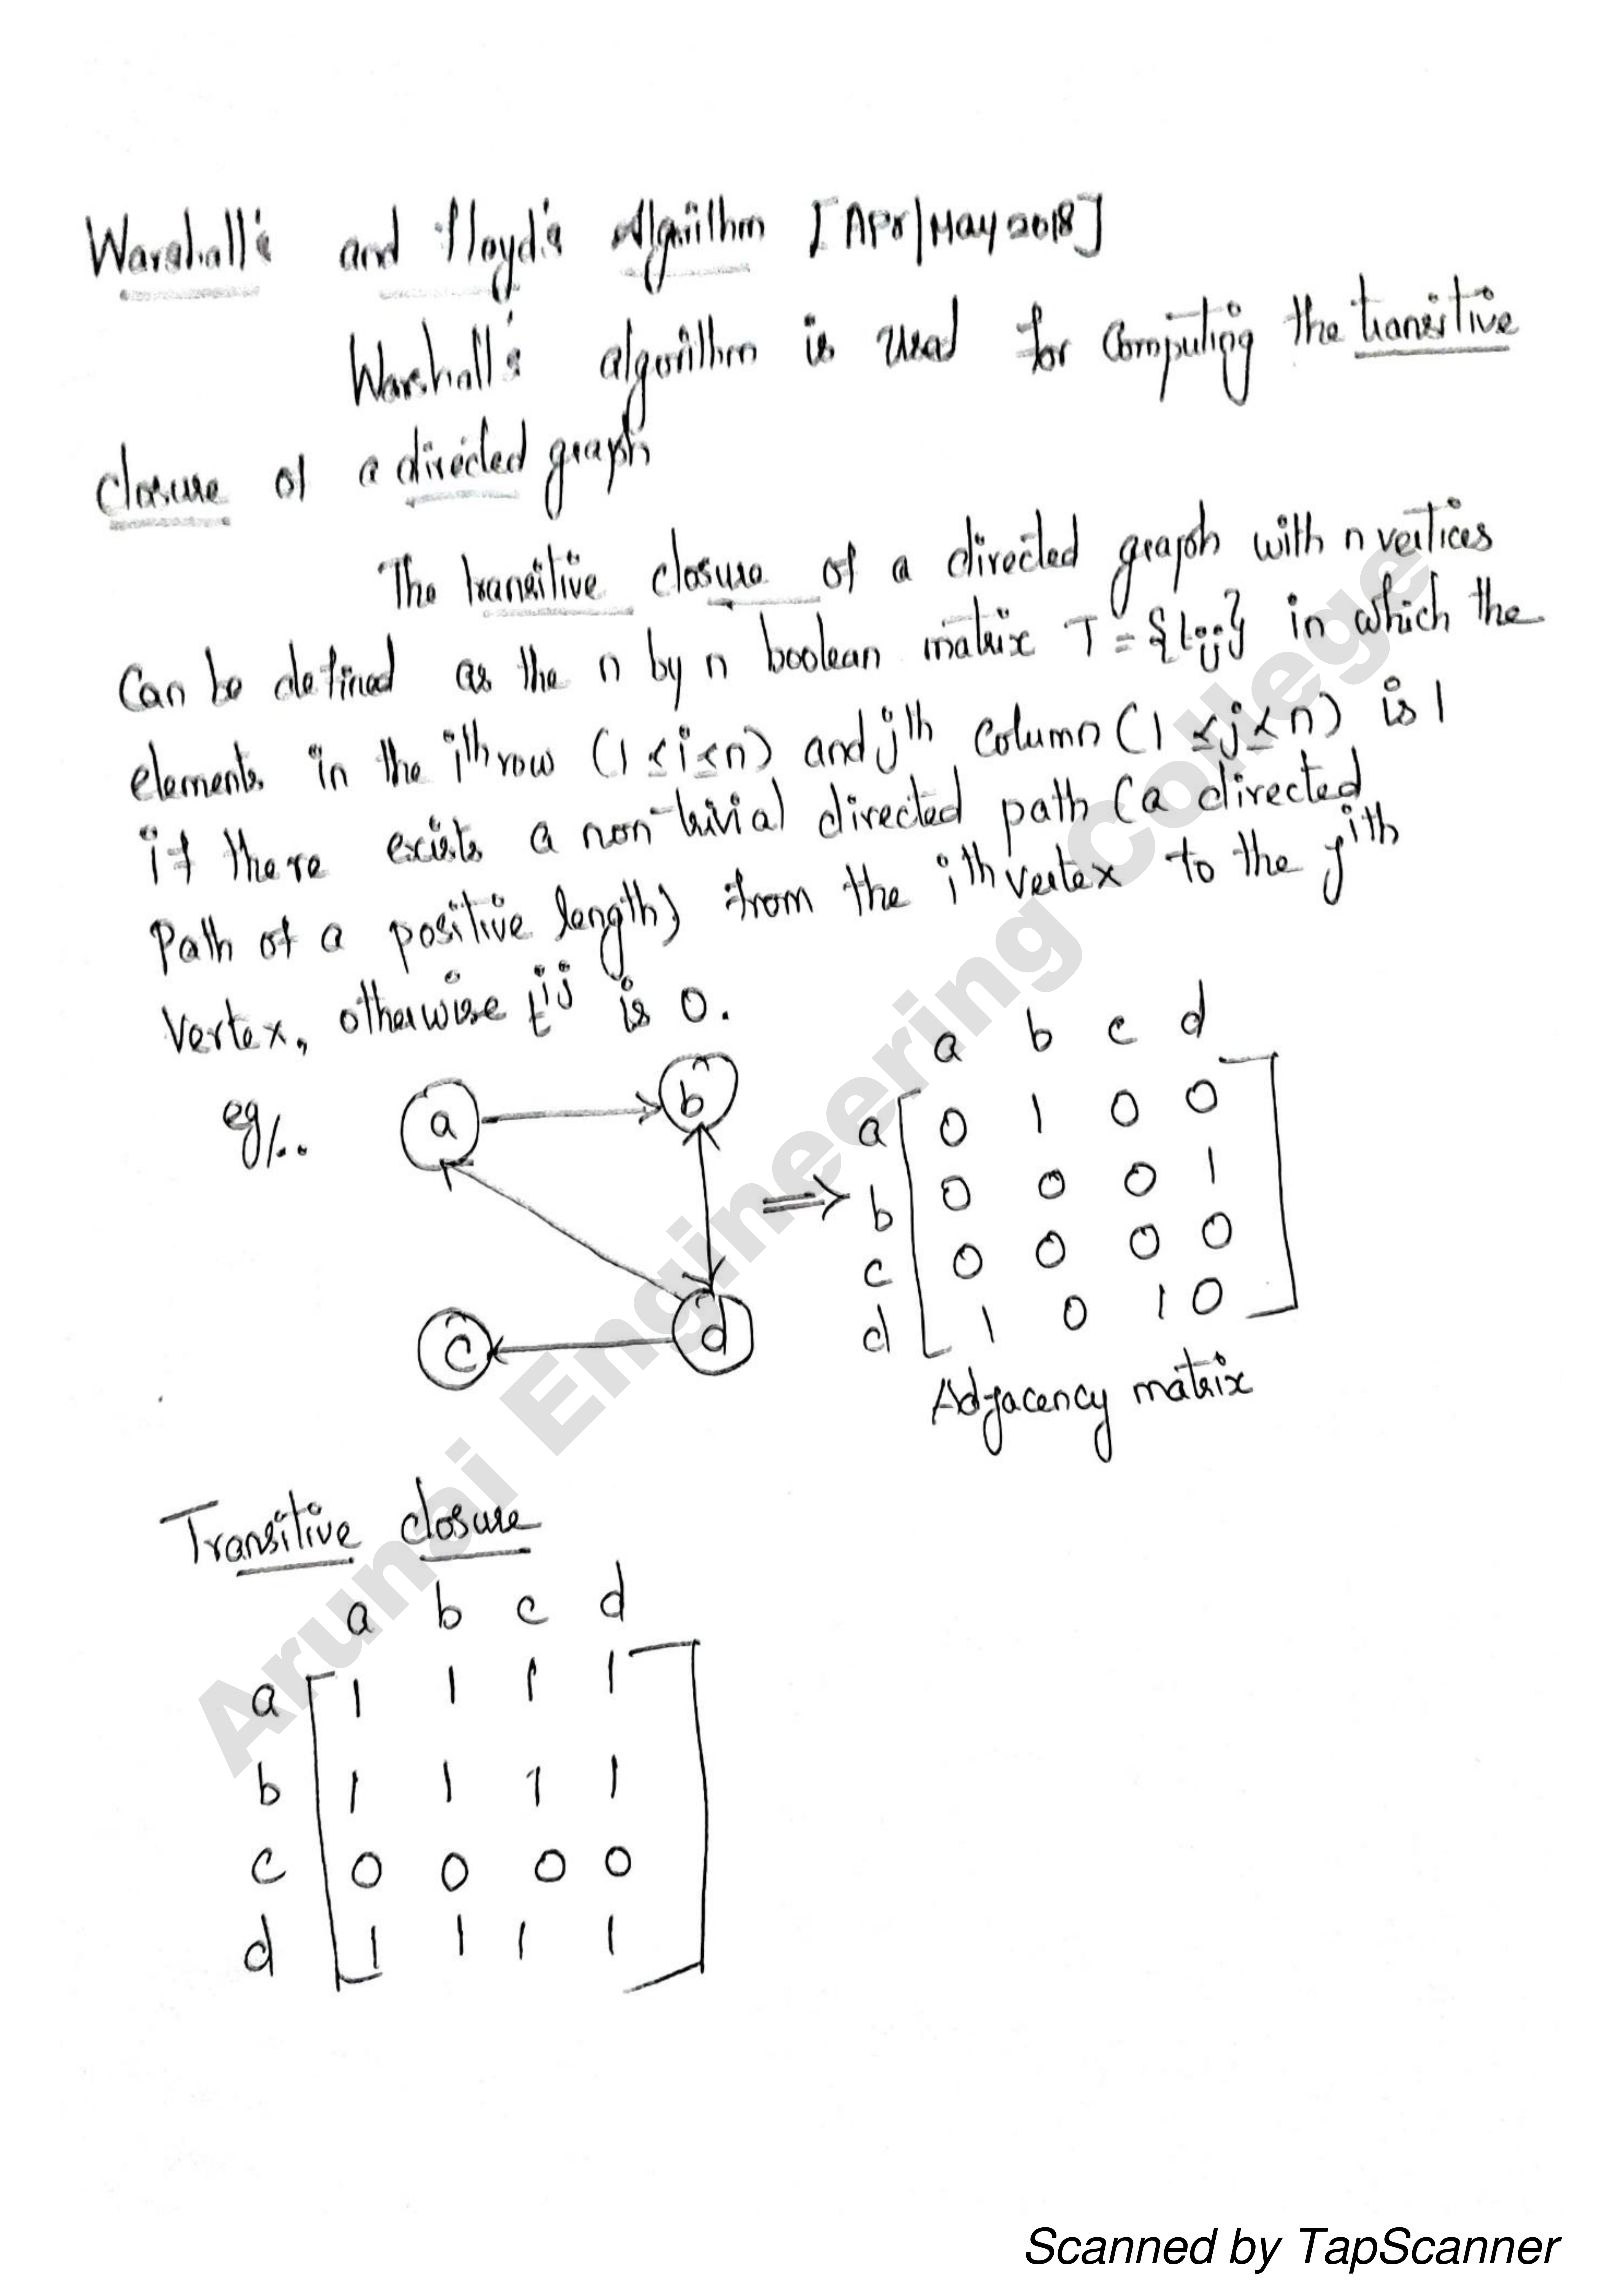 Warshall's and Floyd's Algorithm [Apr/May 2018]
Warshall's algorithm is used for computing the transitive
closure of a directed graph
The transitive closure of a directed graph with n vertices
can be defined as the n by n boolean matrix T = {tij} in which the
elements in the ith row (1 ≤ i ≤ n) and jth column (1 ≤ j ≤ n) is 1
if there exists a non-trivial directed path (a directed
path of a positive length) from the ith vertex to the jth
vertex, otherwise tij is 0.
eg/..
a b
c d
a b c d
a 0 1 0 0
b 0 0 0 1
c 0 0 0 0
d 1 0 1 0
Adjacency matrix
Transitive closure
a b c d
a 1 1 1 1
b 1 1 1 1
c 0 0 0 0
d 1 1 1 1
Arunai Engineering College
Scanned by TapScanner